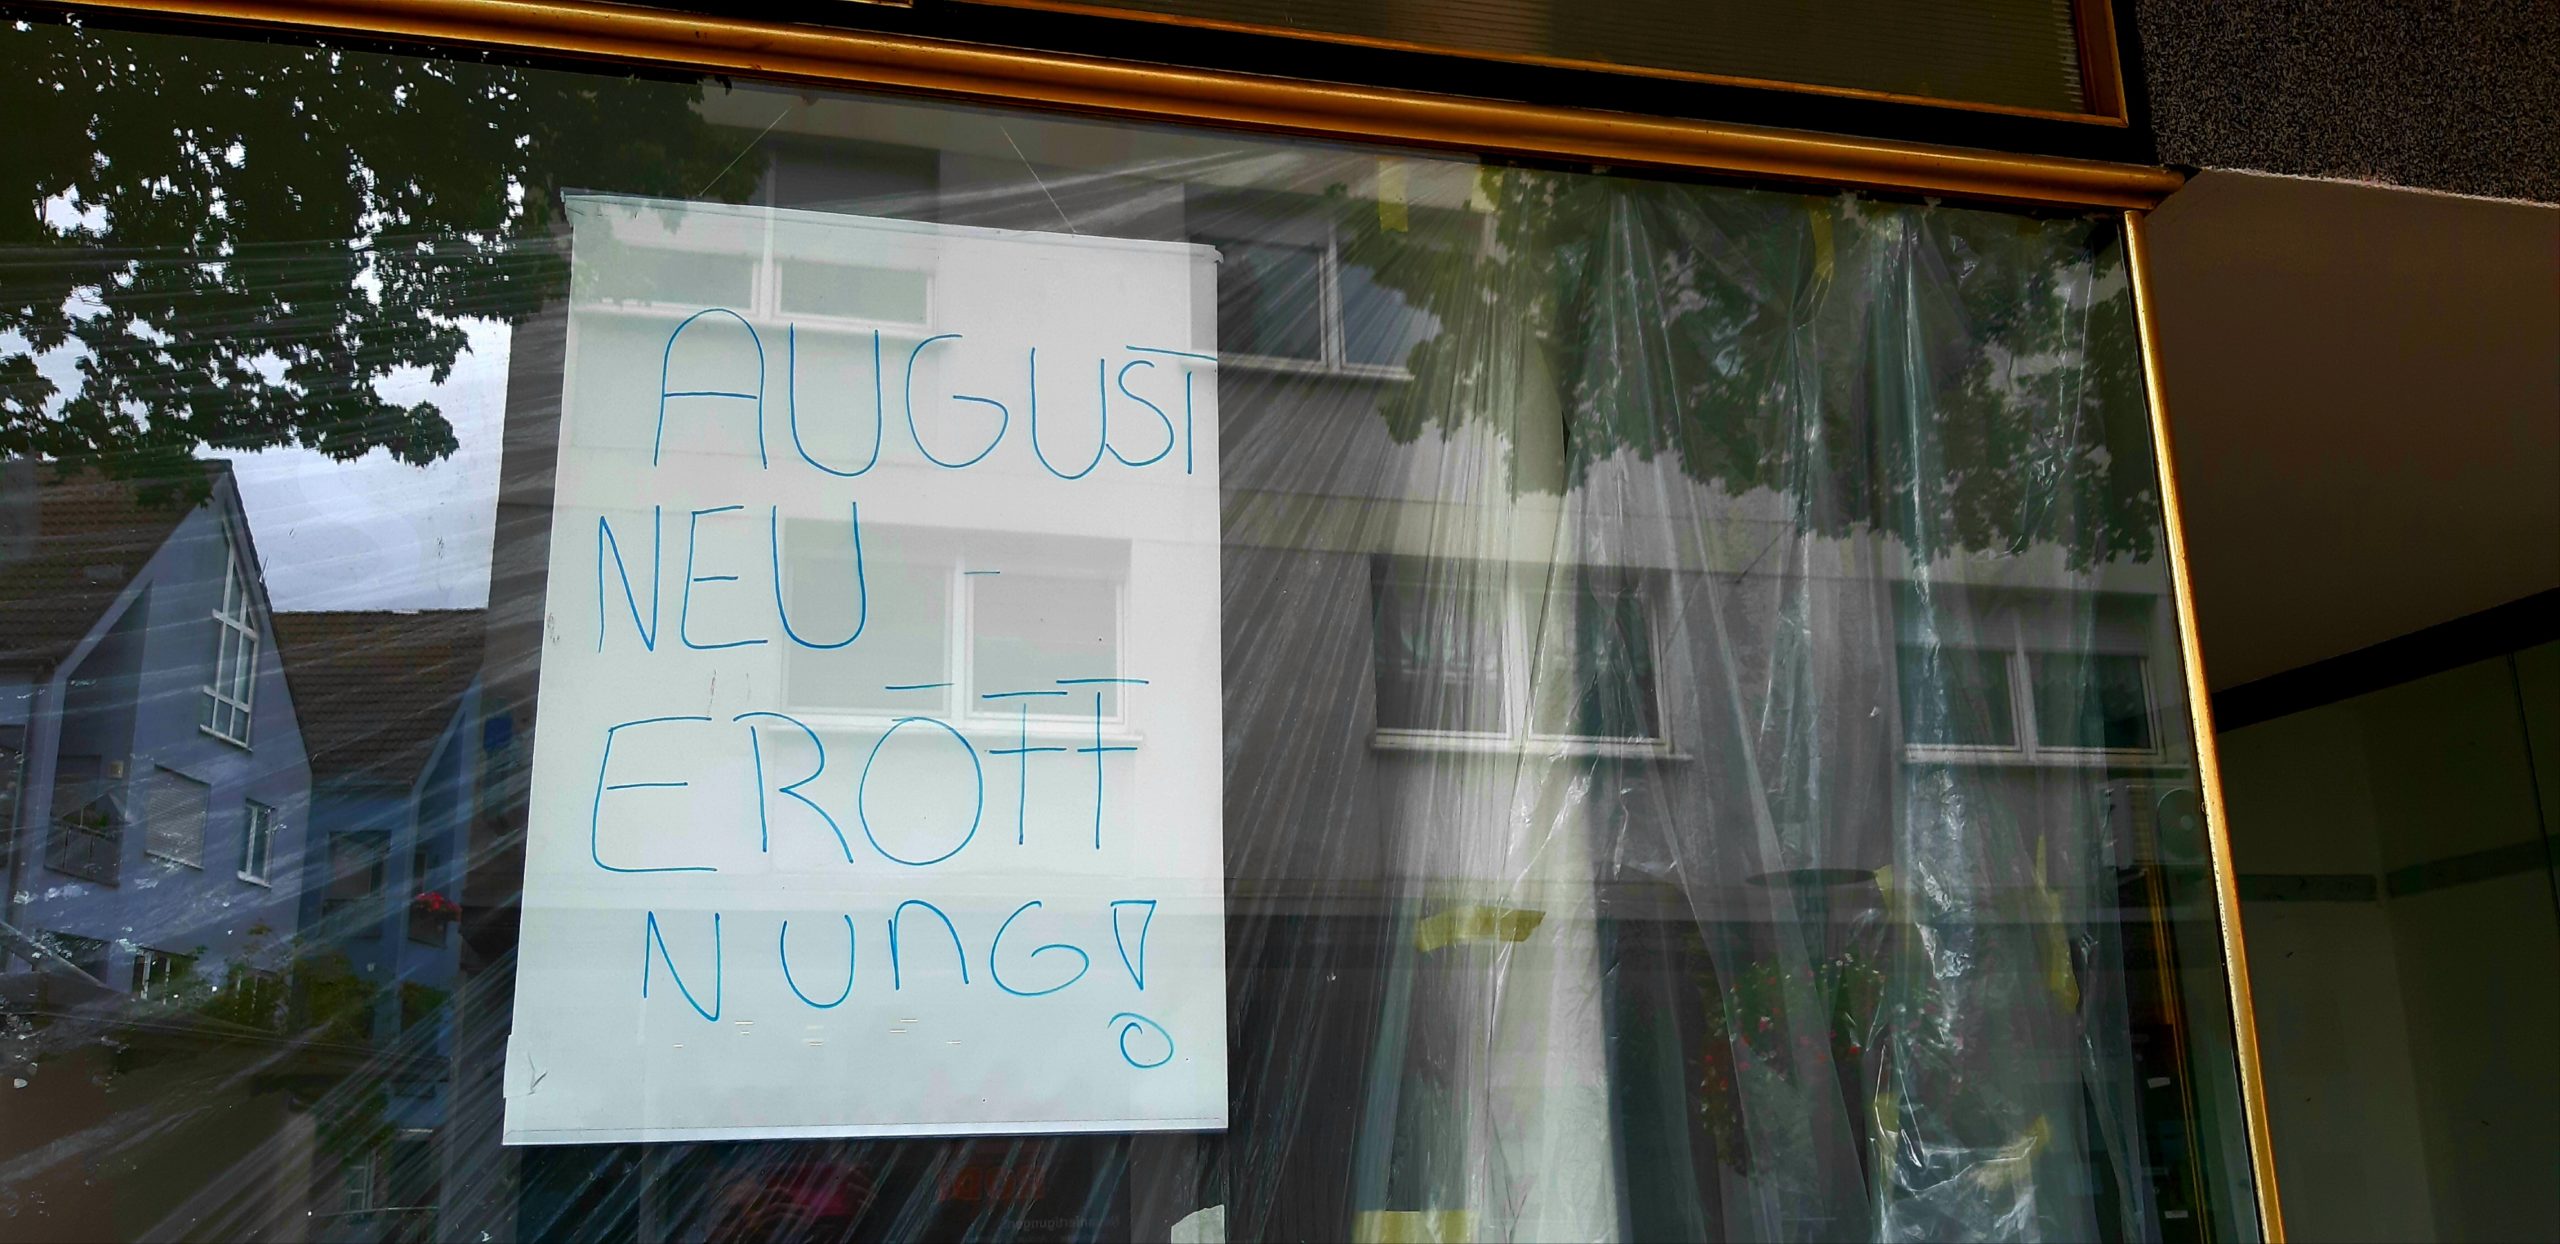 AUGUST
NEU -
ERÖFF
NUNG!